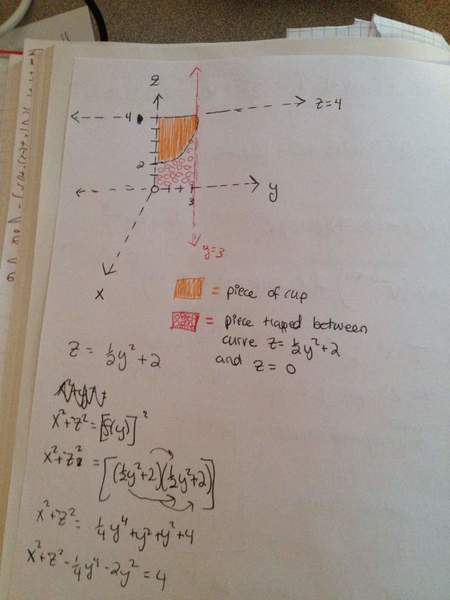 z
4
z=4
2
3
y
y=3
x
= piece of cup
= piece trapped between
curve z = ½y²+2
and z = 0
z = ½y²+2
x²+z² = [f(y)]²
x²+z² = [(½y²+2)(½y²+2)]
x²+z² = ¼y⁴+y²+y²+4
x²+z²-¼y⁴-2y² = 4